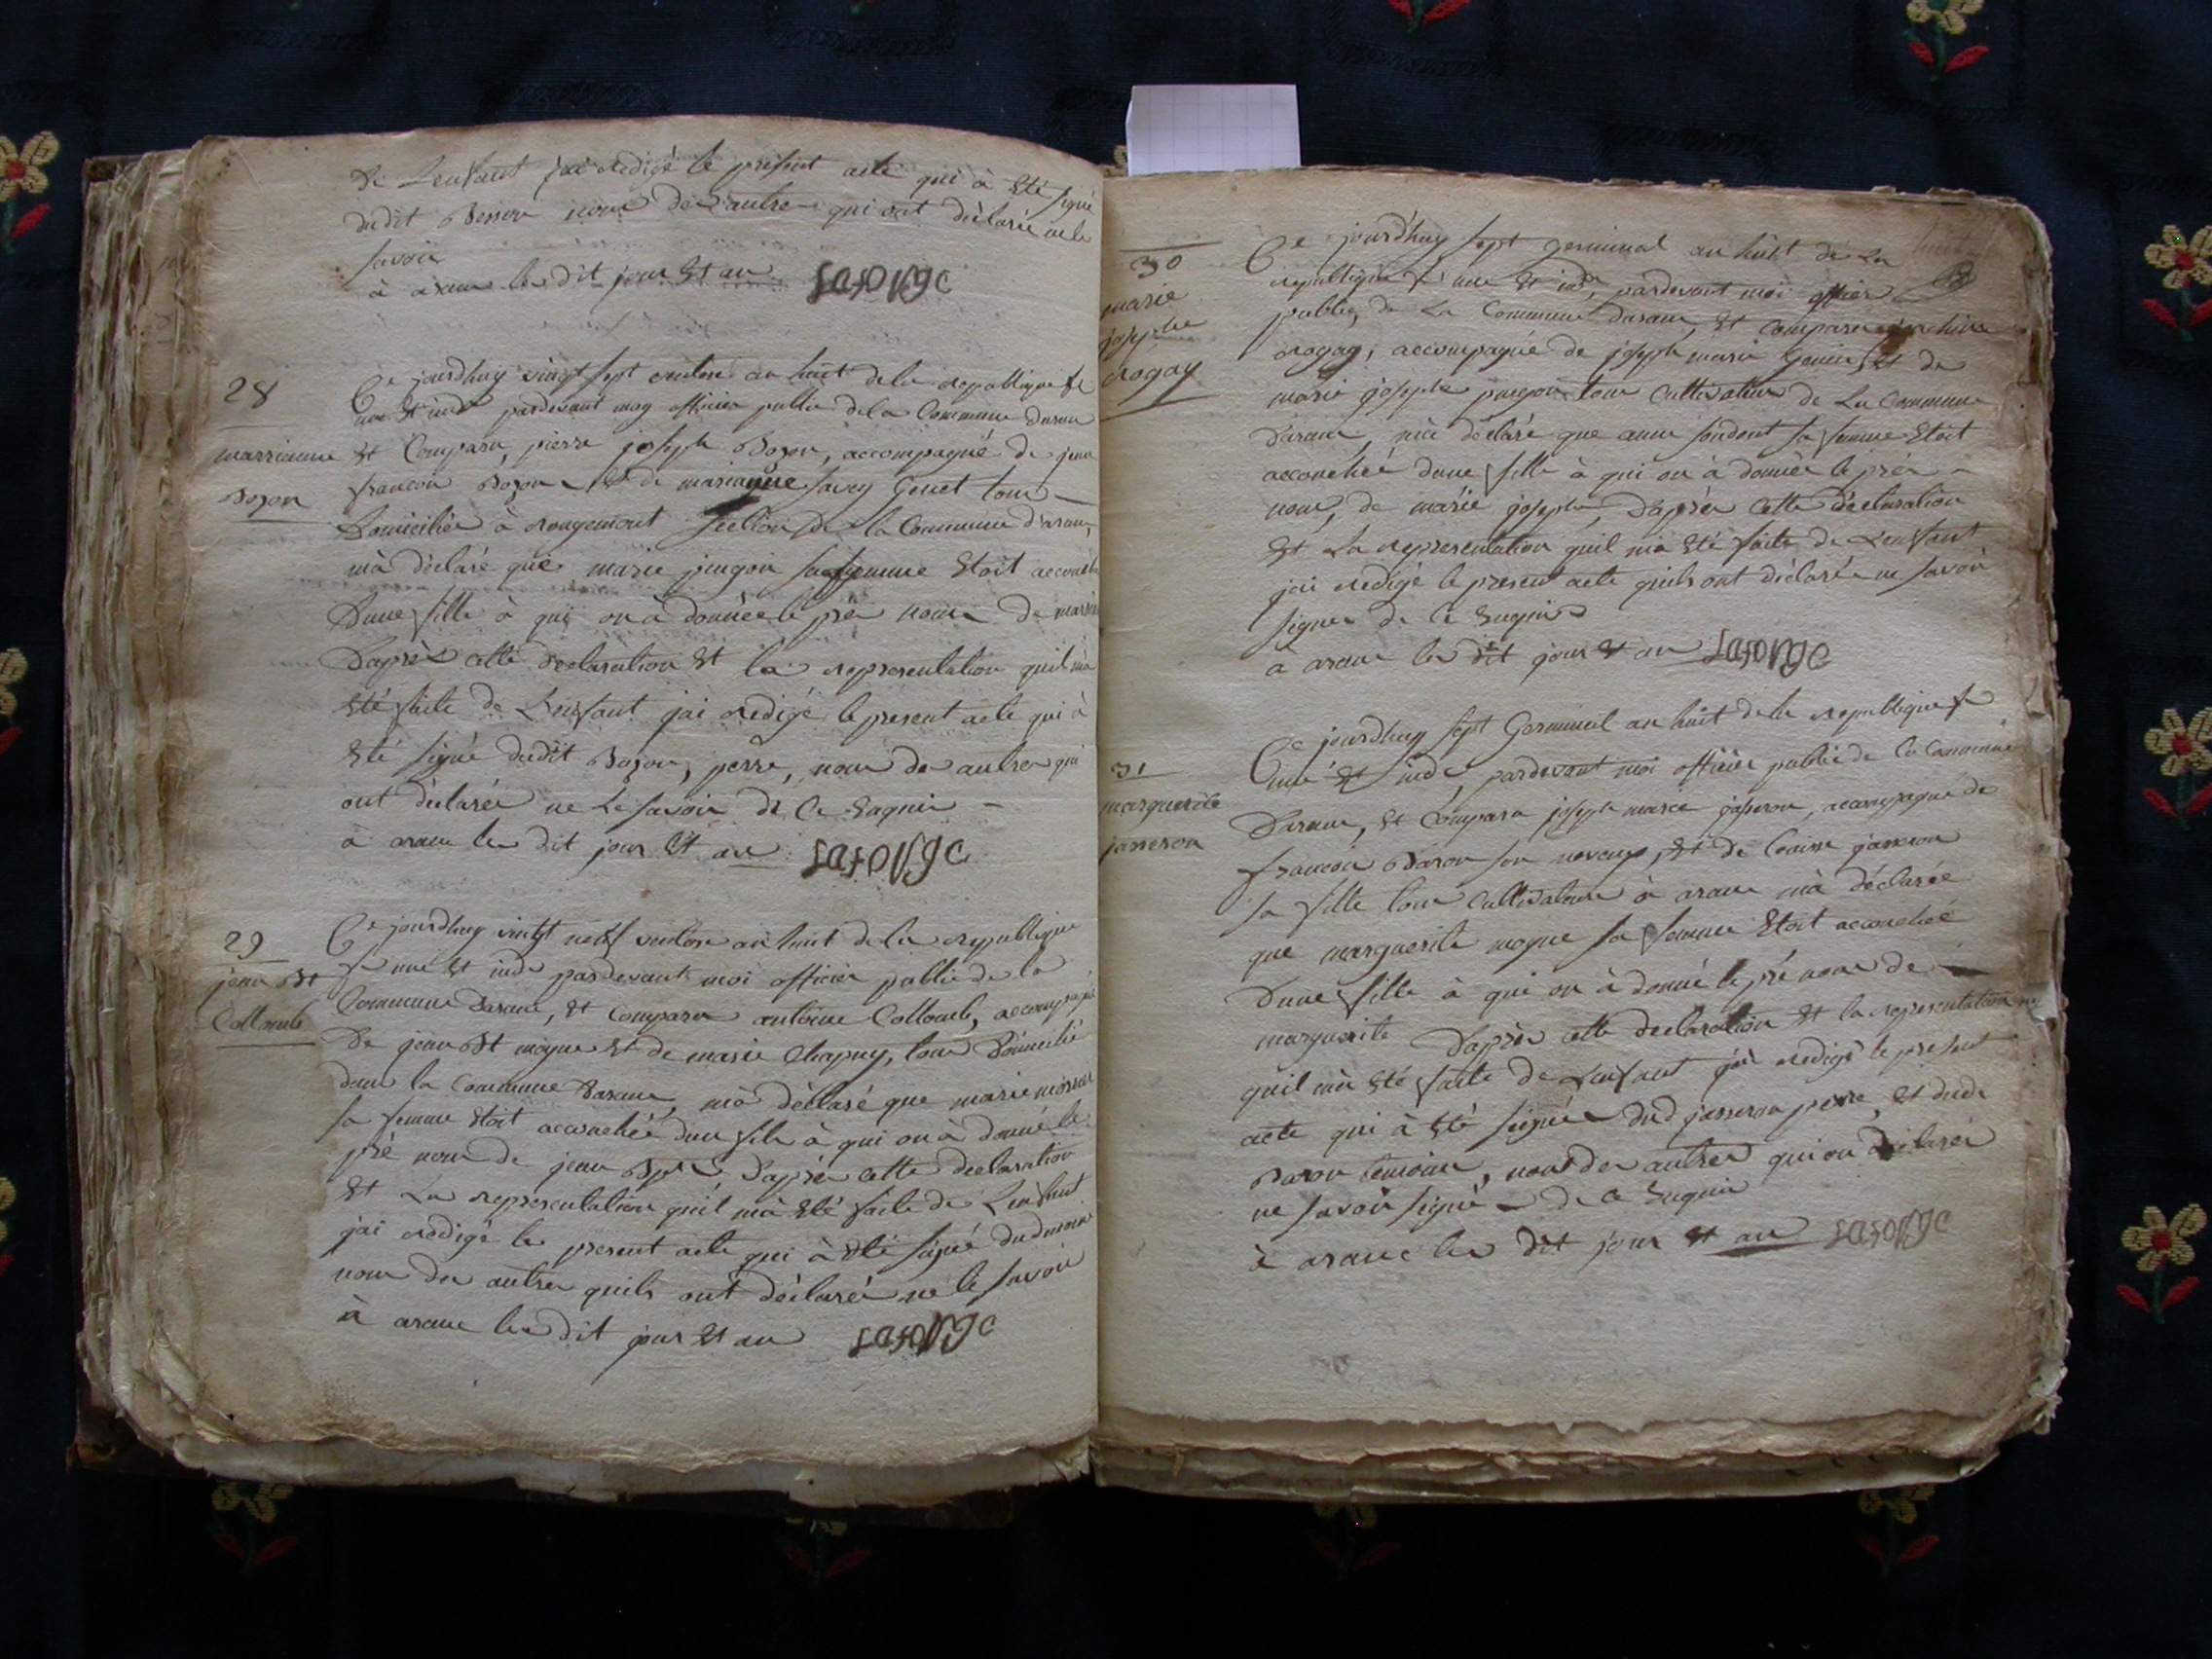 De Lenfant jai redigé le present acte qui à Eté signé
dudit Besson non des autres qui ont déclarés ne le
savoir
à aranc les dit jour Et an
28
marrianne
Bozon
Ce jourdhuy vingt sept ventose an huit de la republique fe
une Et indle pardevant moy officier public de la Commune daranc
Et Comparu, pierre joseph Bozon, accompagné de jean
francois Bozon Et de marianne savey Genet tous
Domiciliés à rougemont section de la Commune d'aranc,
mà déclaré que marie jingon sa femme Etoit accouché
Dune fille à qui on à donnée le pré nom De
Daprès cette declaration Et la representation quil mà
Eté faite de Lenfant jai redigé le present acte qui à
Eté signé dudit Bozon, perre, non des autres qui
ont déclarés ne Le savoir de Ce Enquis
à aranc les dit jour Et an
29
jean Bt
Collomb
Ce jourdhuy vingt neuf ventose an huit de la republique
fe une Et indle pardevant moi officier public de la
Commune Daranc, Et Comparu antoine Collomb, accompagné
De jean Bt moyne Et de marie Chapuy, tous Domicilié
dans la Commune Daranc, mà déclaré que marie
sa femme Etoit accouchée dun fils à qui on à donné le
pré nom de jean Bpte Daprès cette declaration
Et La representation quil mà Eté faite de Lenfant
jai redigé les present acte qui à Eté signé dud
non des autres quils ont déclarés ne le savoir
à aranc les dit jour Et an
30
marie
josephe
rogay
Ce jourdhuy sept Germinal an huit de La
republique fe une Et indle, pardevant moi officier
public, de La Commune daranc, Et Comparu
rogay, accompagné de joseph marie Genin, Et de
marie josephe pingon tous Cultivateur de La Commune
Daranc, mà déclaré que anne sa femme Etoit
accouchée dune fille à qui on à donnée le pré
nom, de marie josephe, Daprès Cette Déclaration
Et La representation quil mà Eté faite de Lenfant
jai redigé le present acte quils ont déclarés ne savoir
signer de ce Enquis
à aranc les dit jour Et an
31
marguerite
jasseron
Ce jourdhuy sept Germinal an huit de la republique fe
une Et indle, pardevant moi officier public de la Commune
Daranc, Et Comparu joseph marie jasseron, accompagné de
francois Baron son neveux, Et de jasseron
sa fille tous Cultivateurs à aranc mà déclarée
que marguerite moyne sa femme Etoit accouchée
Dune fille à qui on à donné le pré nom de
marguerite Daprès cette declaration Et la representation
quil mà Eté faite de Lenfant jai redigé le present
acte qui à Eté signée dud jasseron perre, Et dudt
Baron temoin, non des autres qui on déclarés
ne savoir signé de ce Enquis
à aranc les dit jour Et an